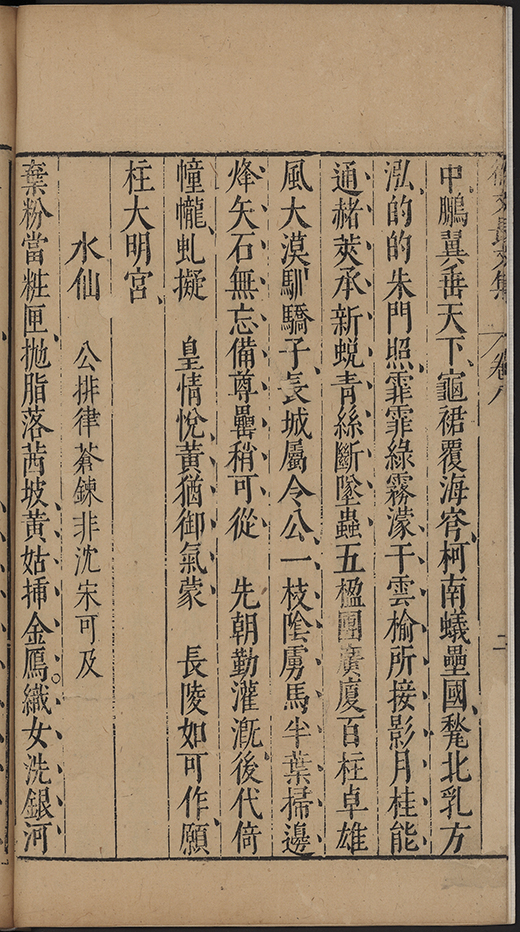 卷八
二
中鵬翼垂天下龜裙覆海窮柯南蟻壘國甃北乳方
泓的的朱門照霏霏綠霧濛干雲榆所接影月桂能
通赭莢承新蛻青絲斷墜蟲五楹團廣廈百柱卓雄
風大漠馴驕子長城屬令公一枝陰虜馬半葉掃邊
烽矢石無忘備尊罍稍可從 先朝勤灌溉後代倚
幢幰虬擬 皇情悅黃猶御氣蒙 長陵如可作願
柱大明宮
水仙 公排律蒼鍊非沈宋可及
棄粉當粧匣拋脂落茜坡黃姑揷金鴈織女洗銀河